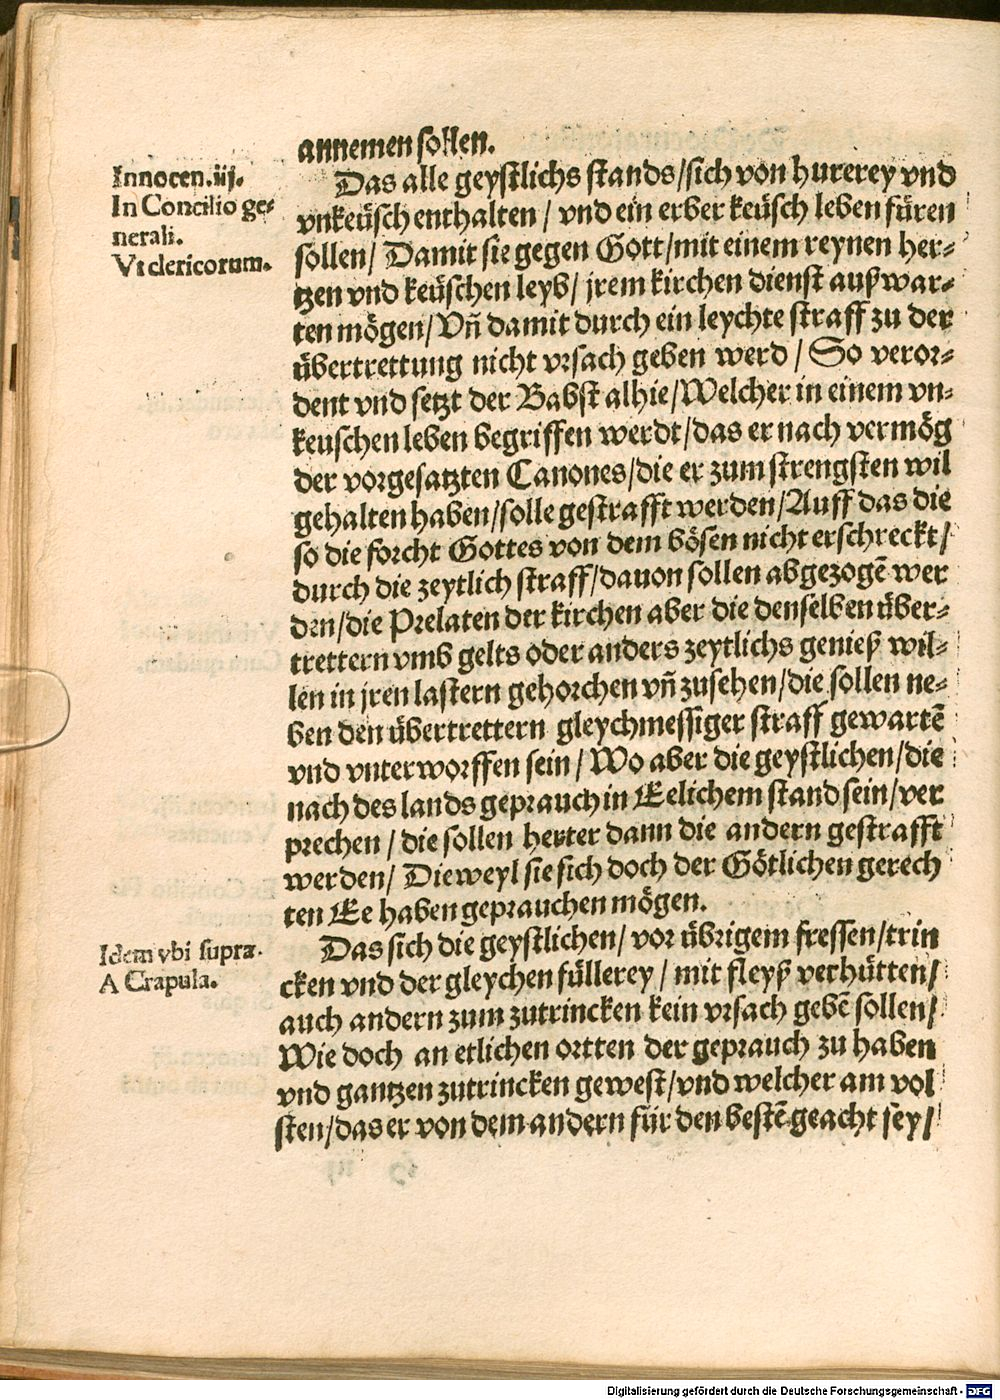 annemen sollen.
Innocen.iij.
In Concilio ge-
nerali.
Vt clericorum.
Das alle geystlichs stands/sich von hurerey vnd
vnkeüsch enthalten / vnd ein erber keüsch leben füren
sollen/ Damit sie gegen Gott/mit einem reynen her-
tzen vnd keüschen leyb/ jrem kirchen dienst außwar-
ten mögen/Vñ damit durch ein leychte straff zu der
übertrettung nicht vrsach geben werd / So veror-
dent vnd setzt der Babst alhie/Welcher in einem vn-
keuschen leben begriffen werdt/das er nach vermög
der vorgesatzten Canones/die er zum strengsten wil
gehalten haben/solle gestrafft werden/Auff das die
so die forcht Gottes von dem bösen nicht erschreckt/
durch die zeytlich straff/dauon sollen abgezogē wer
den/die Prelaten der kirchen aber die denselben über-
trettern vmb gelts oder anders zeytlichs genieß wil-
len in jren lastern gehorchen vñ zusehen/die sollen ne-
ben den übertrettern gleychmessiger straff gewartē
vnd vnterworffen sein / Wo aber die geystlichen/die
nach des lands geprauch in Eelichem stand sein/ver
prechen / die sollen herter dann die andern gestrafft
werden/ Dieweyl sie sich doch der Götlichen gerech
ten Ee haben geprauchen mögen.
Idem vbi supra.
A Crapula.
Das sich die geystlichen/ vor übrigem fressen/trin
cken vnd der gleychen füllerey / mit fleyß verhütten/
auch andern zum zutrincken kein vrsach gebē sollen/
Wie doch an etlichen ortten der geprauch zu haben
vnd gantzen zutrincken gewest/vnd welcher am vol
sten/das er von dem andern für den bestē geacht sey/
Digitalisierung gefördert durch die Deutsche Forschungsgemeinschaft - DFG